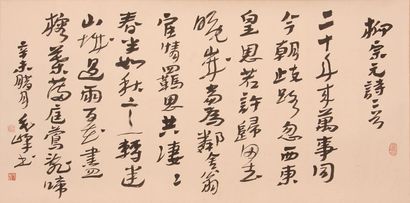 柳宗元詩二首
二十年来萬事同
今朝歧路忽西東
皇恩若許歸田去
晚歲當為鄰舍翁
宦情羈思共淒〻
春半如秋意轉迷
山城過雨百花盡
榕葉滿庭鶯亂啼
辛未腊月
峰书